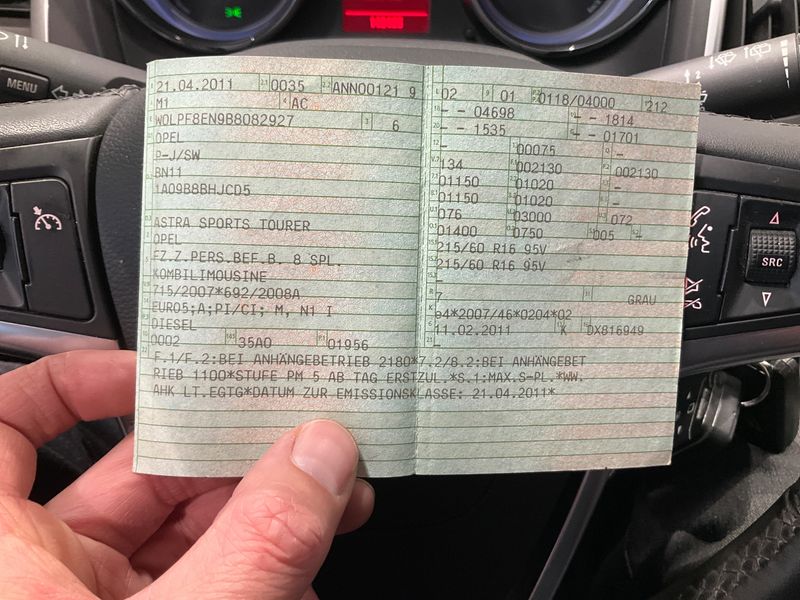 MENU
21.04.2011 0035 ANN00121 9
M1 AC
WOLPF8EN9B8082927 6
OPEL
P-J/SW
BN11
1A09B8BHJCD5
ASTRA SPORTS TOURER
OPEL
FZ.Z.PERS.BEF.B. 8 SPL.
KOMBILIMOUSINE
715/2007*692/2008A
EURO5;A;PI/CI; M, N1 I
DIESEL
0002 35A0 01956
02 01 0118/04000 212
- - 04698 - 1814
- - 1535 - 01701
- 00075 -
134 002130 002130
01150 01020 -
01150 01020 -
076 03000 072
01400 0750 005 -
215/60 R16 95V
215/60 R16 95V
-
-
7 GRAU
e4*2007/46*0204*02
11.02.2011 K DX816949
-
F.1/F.2:BEI ANHÄNGEBETRIEB 2180*7.2/8.2:BEI ANHÄNGEBET
RIEB 1100*STUFE PM 5 AB TAG ERSTZUL.*S.1:MAX.S-PL.*WW.
AHK LT.EGTG*DATUM ZUR EMISSIONSKLASSE: 21.04.2011*
SRC